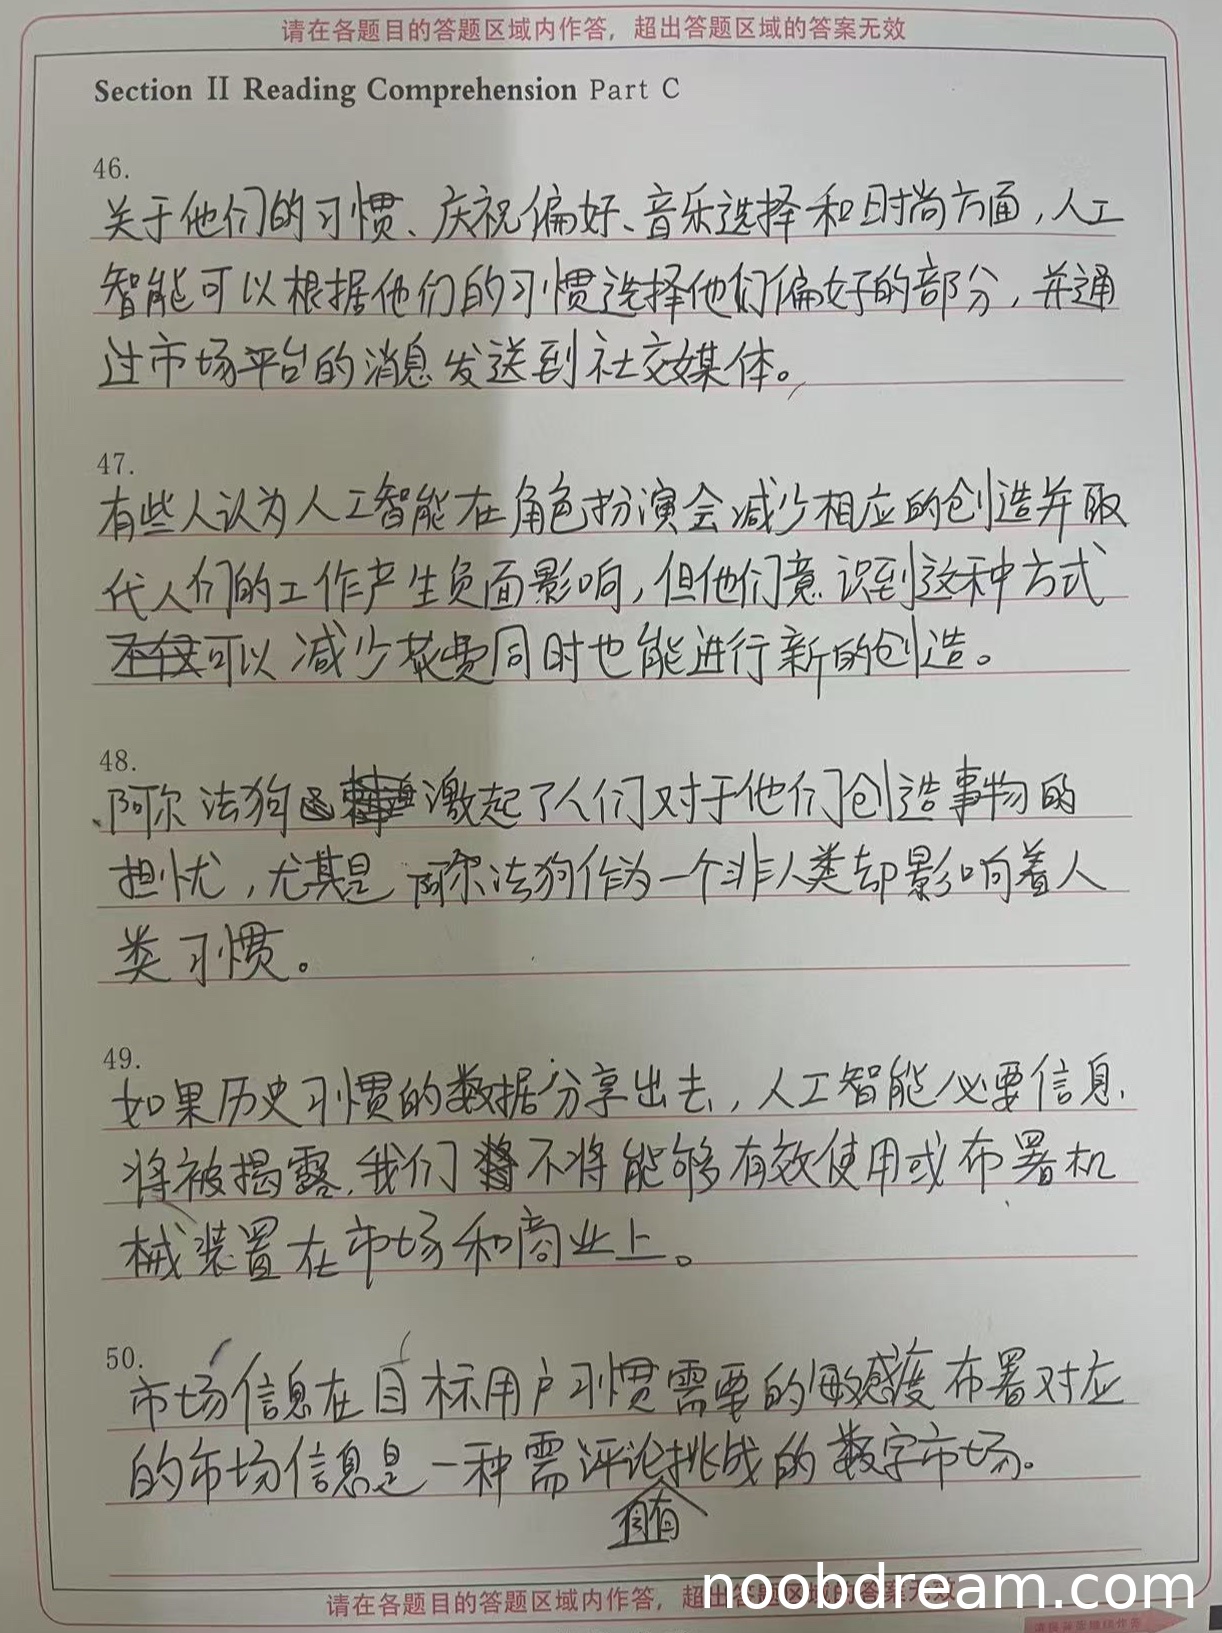 请在各题目的答题区域内作答，超出答题区域的答案无效
Section II Reading Comprehension Part C
46.
关于他们的习惯、庆祝偏好、音乐选择和时尚方面，人工
智能可以根据他们的习惯选择他们偏好的部分，并通
过市场平台的消息发送到社交媒体。
47.
有些人认为人工智能在角色扮演会减少相应的创造并取
代人们的工作产生负面影响，但他们意识到这种方式
不仅可以减少花费同时也能进行新的创造。
48.
阿尔法狗激起了人们对于他们创造事物的
担忧，尤其是阿尔法狗作为一个非人类却影响着人
类习惯。
49.
如果历史习惯的数据分享出去，人工智能必要信息
将被揭露，我们不将能够有效使用或布署机
械装置在市场和商业上。
50.
市场信息在目标用户习惯需要的敏感度布署对应
的市场信息是一种需评论挑战的数字市场。
具有
请在各题目的答题区域内作答，超出答题区域的答案无效
noobdream.com